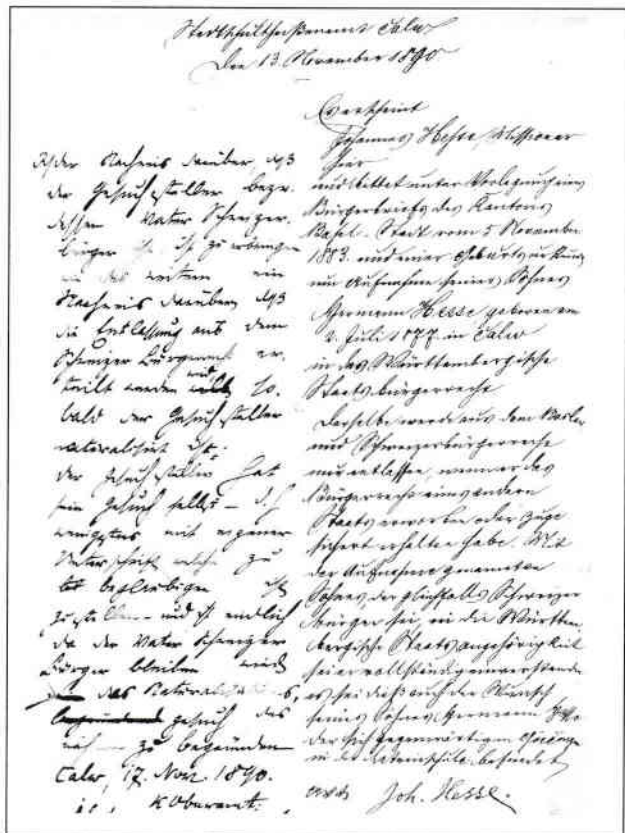 Stadtschultheißenamt Calw
Den 13. November 1890
Erscheint
Johannes Hesse, Missionar
hier
und bittet unter Vorlegung eines
Bürgerbriefs des Kantons
Basel-Stadt vom 5 November
1883. und einer Geburtsurkunde
um Aufnahme seines Sohnes
Hermann Hesse geboren am
2. Juli 1877 in Calw
in das Württembergische
Staatsbürgerrecht.
Derselbe werde aus dem Basler
und Schweizerbürgerrecht
nur entlassen, wenn er das
Bürgerrecht eines andern
Staats erworben oder zuge
sichert erhalten habe. Mit
der Aufnahme genannten
Sohnes, der gleichfalls Schweizer
bürger sei, in die Württem
bergische Staatsangehörigkeit
sei er vollständig einverstanden
es sei dieß auch der Wunsch
seines Sohnes Hermann
der sich gegenwärtig in Göppingen
in der Lateinschule befindet
Joh. Hesse.
der Nachweis darüber, daß
der Gesuchsteller bezw.
dessen Vater Schweizer-
bürger ist zu erbringen
des weitern ein
Nachweis darüber, daß
die Entlassung aus dem
Schweizer Bürgerrecht er-
teilt werden wird so-
bald der Gesuchsteller
naturalisirt ist.
der Gesuchsteller hat
sein Gesuch selbst – d. h.
wenigstens mit eigener
Unterschrift welche zu
beglaubigen ist
zu stellen – und ist endlich
da der Vater Schweizer
Bürger bleiben wird
das
gesuch des
zu begründen
Calw, 17. Nov. 1890.
K Oberamt.